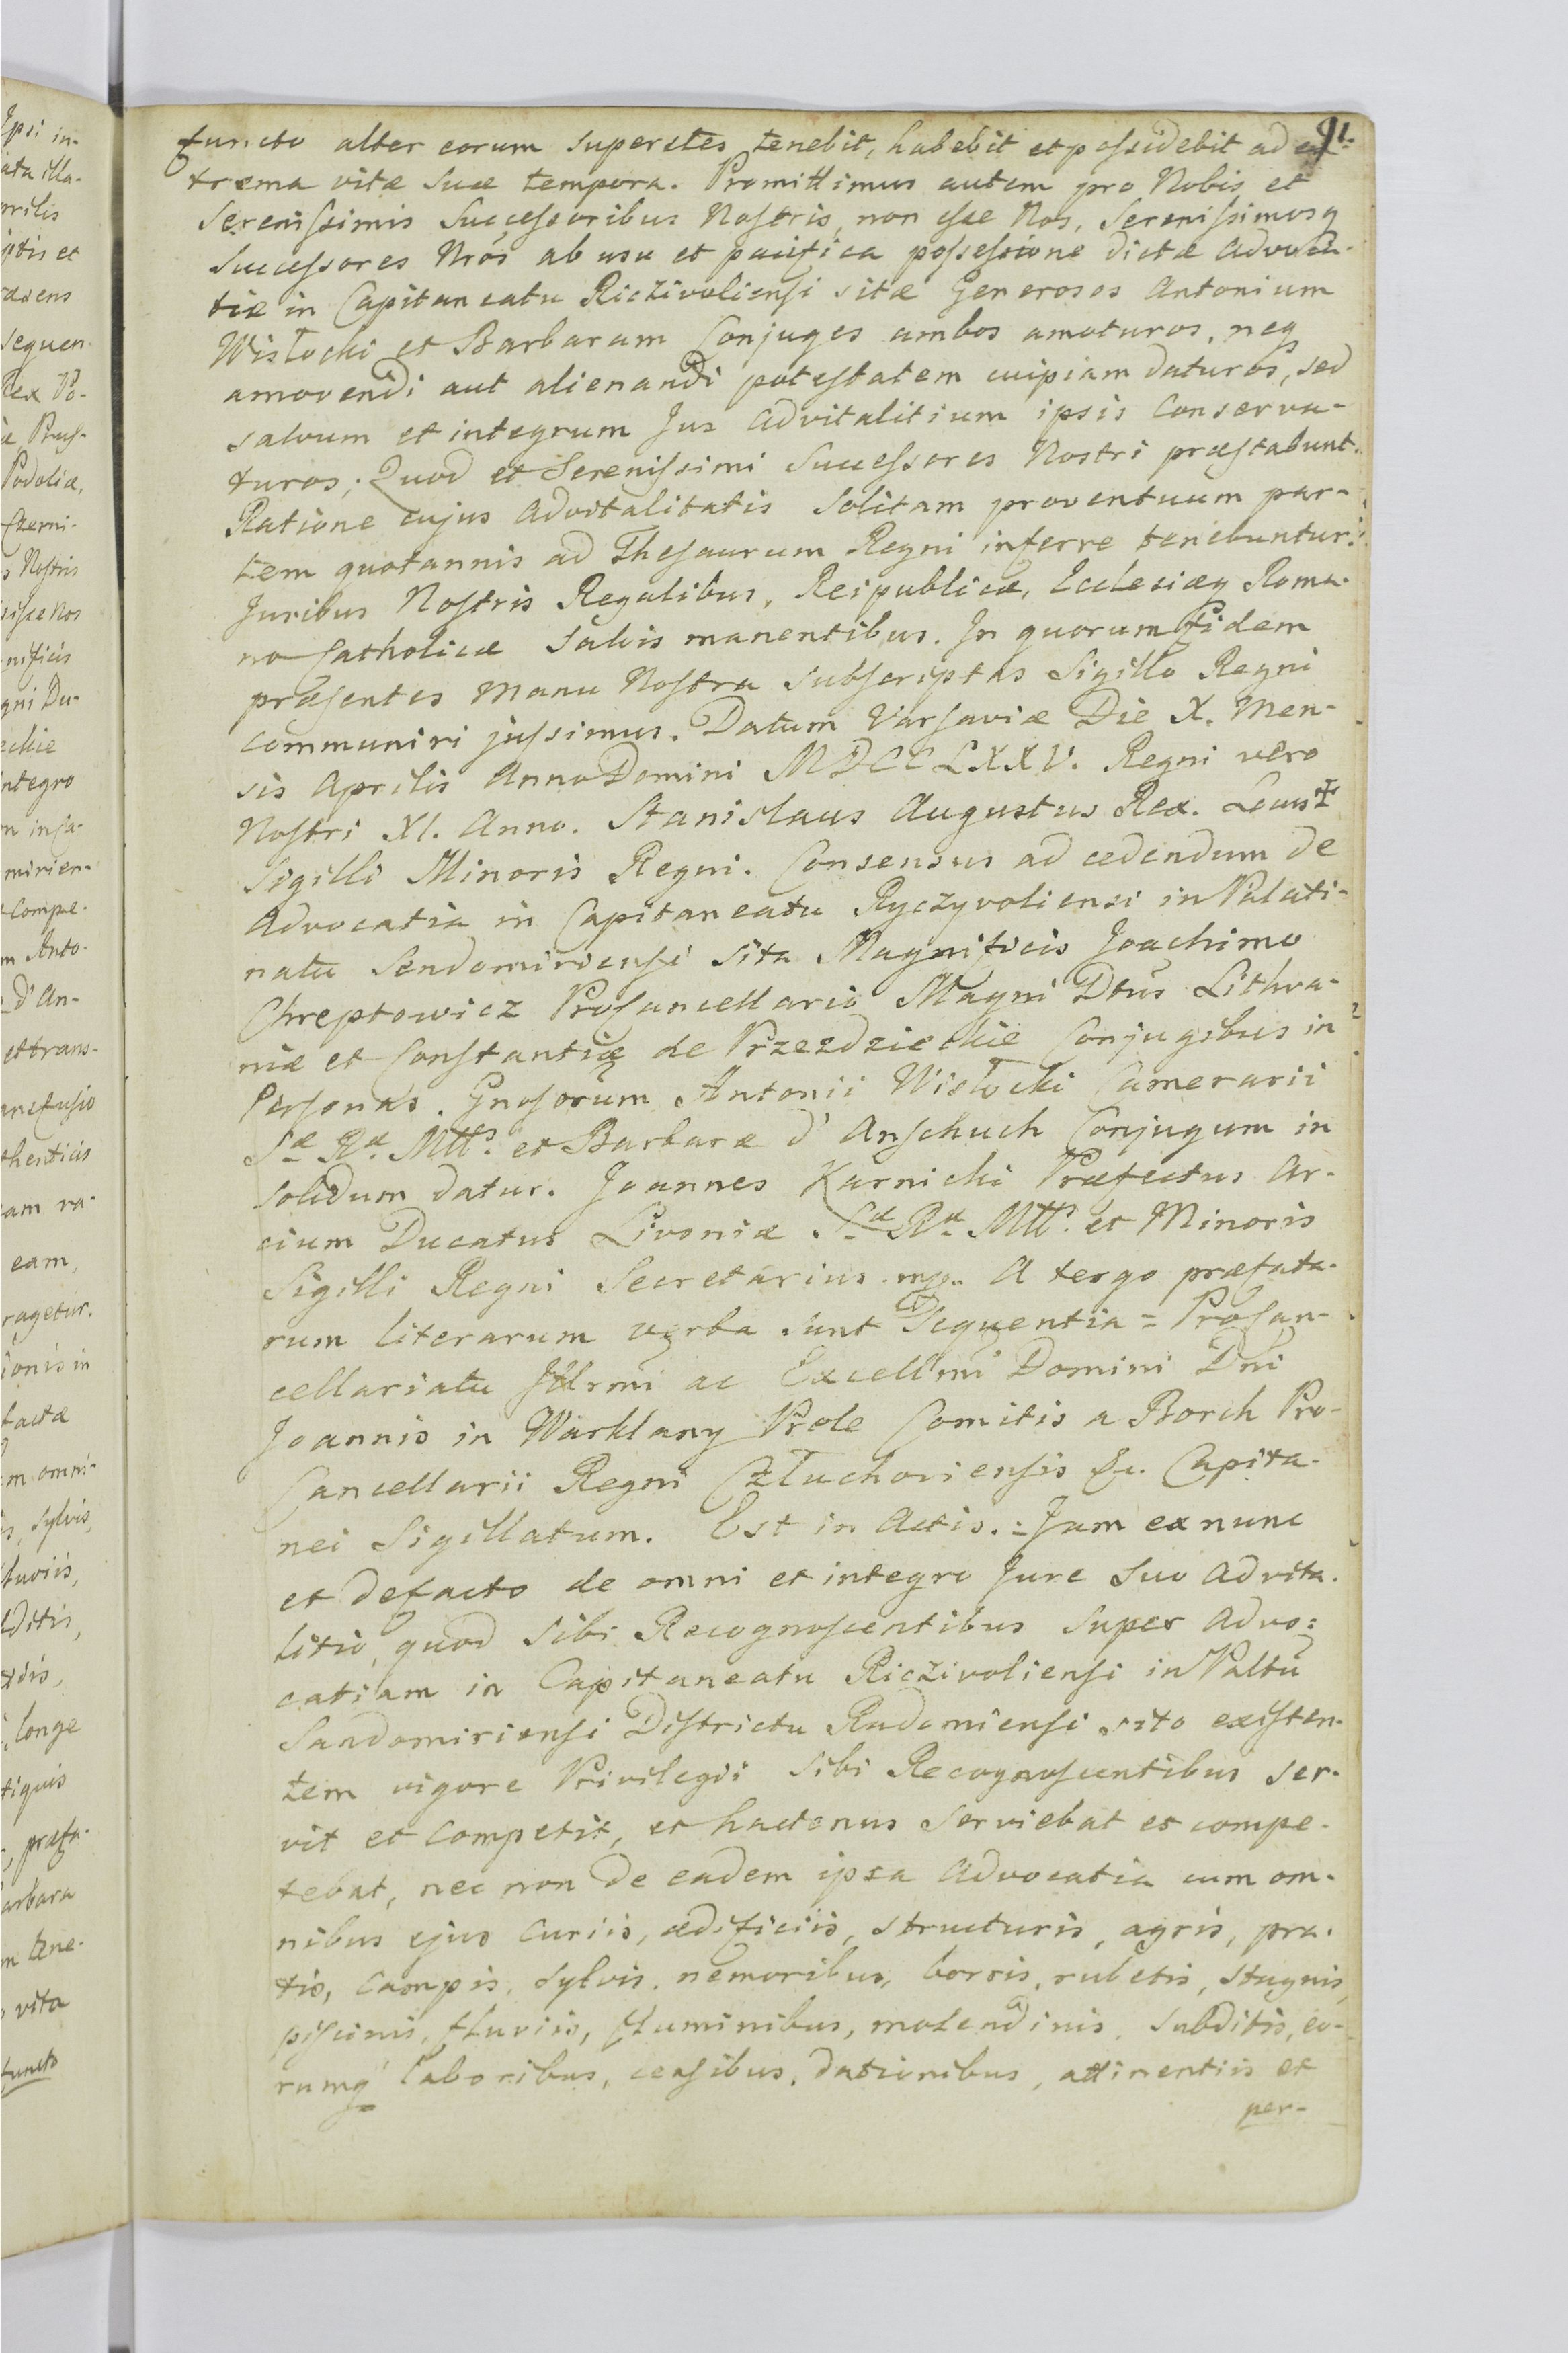 91.
functo alter eorum superstes tenebit, habebit et possidebit ad ex-
trema vitæ suæ tempora. Promittimus autem pro Nobis et
Serenissimis Successoribus Nostris, non esse Nos, Serenissimosq
Successores Nrós ab usu et pacifica possessione dictæ Advoca-
tiæ in Capitaneatu Riczivoliensi sitæ Generosos Antonium
Wisłocki et Barbaram Conjuges ambos amoturos, neq
amovendi aut alienandi potestatem cuipiam daturos, sed
salvum et integrum Jus advitalitium ipsis conserva-
turos; Quod et Serenissimi Successores Nostri præstabunt.
Ratione cujus advitalitatis solitam proventuum par-
tem quotannis ad Thesaurum Regni inferre tenebuntur.
Juribus Nostris Regalibus, Reipublicæ, Ecclesiæq Roma-
no Catholicæ salvis manentibus. In quorum fidem
præsentes manu Nostra subscriptas Sigillo Regni
communiri jussimus. Datum Varsaviæ Die X. Men-
sis Aprilis Anno Domini MDCCLXXV. Regni vero
Nostri XI. Anno. Stanislaus Augustus Rex. Locus
Sigilli Minoris Regni. Consensus ad cedendum de
Advocatia in Capitaneatu Ryczyvoliensi in Palati-
natu Sendomiriensi sita Magnificis Joachimo
Chreptowicz ProCancellario Magni Dtus Lithva-
niæ et Constantiæ de Przezdzieckie Conjugibus in
Personas Gnosorum Antonii Wisłocki Camerarii
Sæ Ræ Mttis et Barbaræ d'Anschuch Conjugum in
solidum datur. Joannes Karnicki Præfectus Ar-
cium Ducatus Livoniæ Sæ Ræ Mttis et Minoris
Sigilli Regni Secretarius mp. A tergo præfata-
rum literarum verba sunt Sequentia = ProCan-
cellariatu Illrmi ac Excellmi Domini Dni
Joannis in Warklany Prele Comitis a Borch Pro-
Cancellarii Regni Człuchoviensis &c. Capita-
nei Sigillatum. Est in Actis. = Jam ex nunc
et defacto de omni et integro Jure suo advita-
litio, quod sibi Recognoscentibus super Advo=
catiam in Capitaneatu Riczivoliensi in Paltu
Sandomiriensi Districtu Radomiensi sito existen-
tem vigore Privilegii sibi Recognoscentibus ser-
vit et competit, et hactenus serviebat et compe-
tebat, nec non de eadem ipsa Advocatia cum om-
nibus ejus Curiis, ædificiis, structuris, agris, pra-
tis, campis, sylvis, nemoribus, borris, rubetis, stagnis,
piscinis, fluviis, fluminibus, molendinis, subditis, eo-
rumq laboribus, censibus, dationibus, attinentiis et
per-